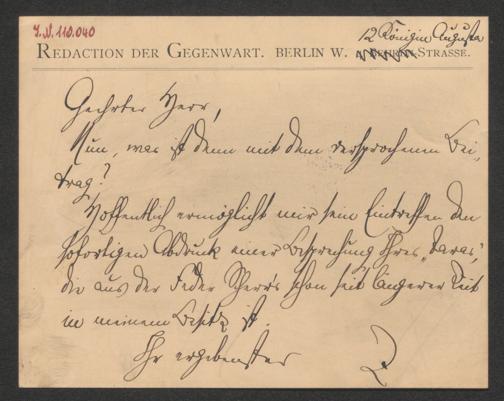 I.N. 110.040
12 Königin Augusta
REDACTION DER GEGENWART. BERLIN W. STRASSE.
Geehrter Herr,
Nun, was ist denn mit dem versprochenen Bei-
trag?
Hoffentlich ermöglicht mir sein Eintreffen den
sofortigen Abdruck einer Besprechung Ihres „Daras“,
die aus der Feder Scherr's schon seit längerer Zeit
in meinem Besitz ist.
Ihr ergebenster
Z